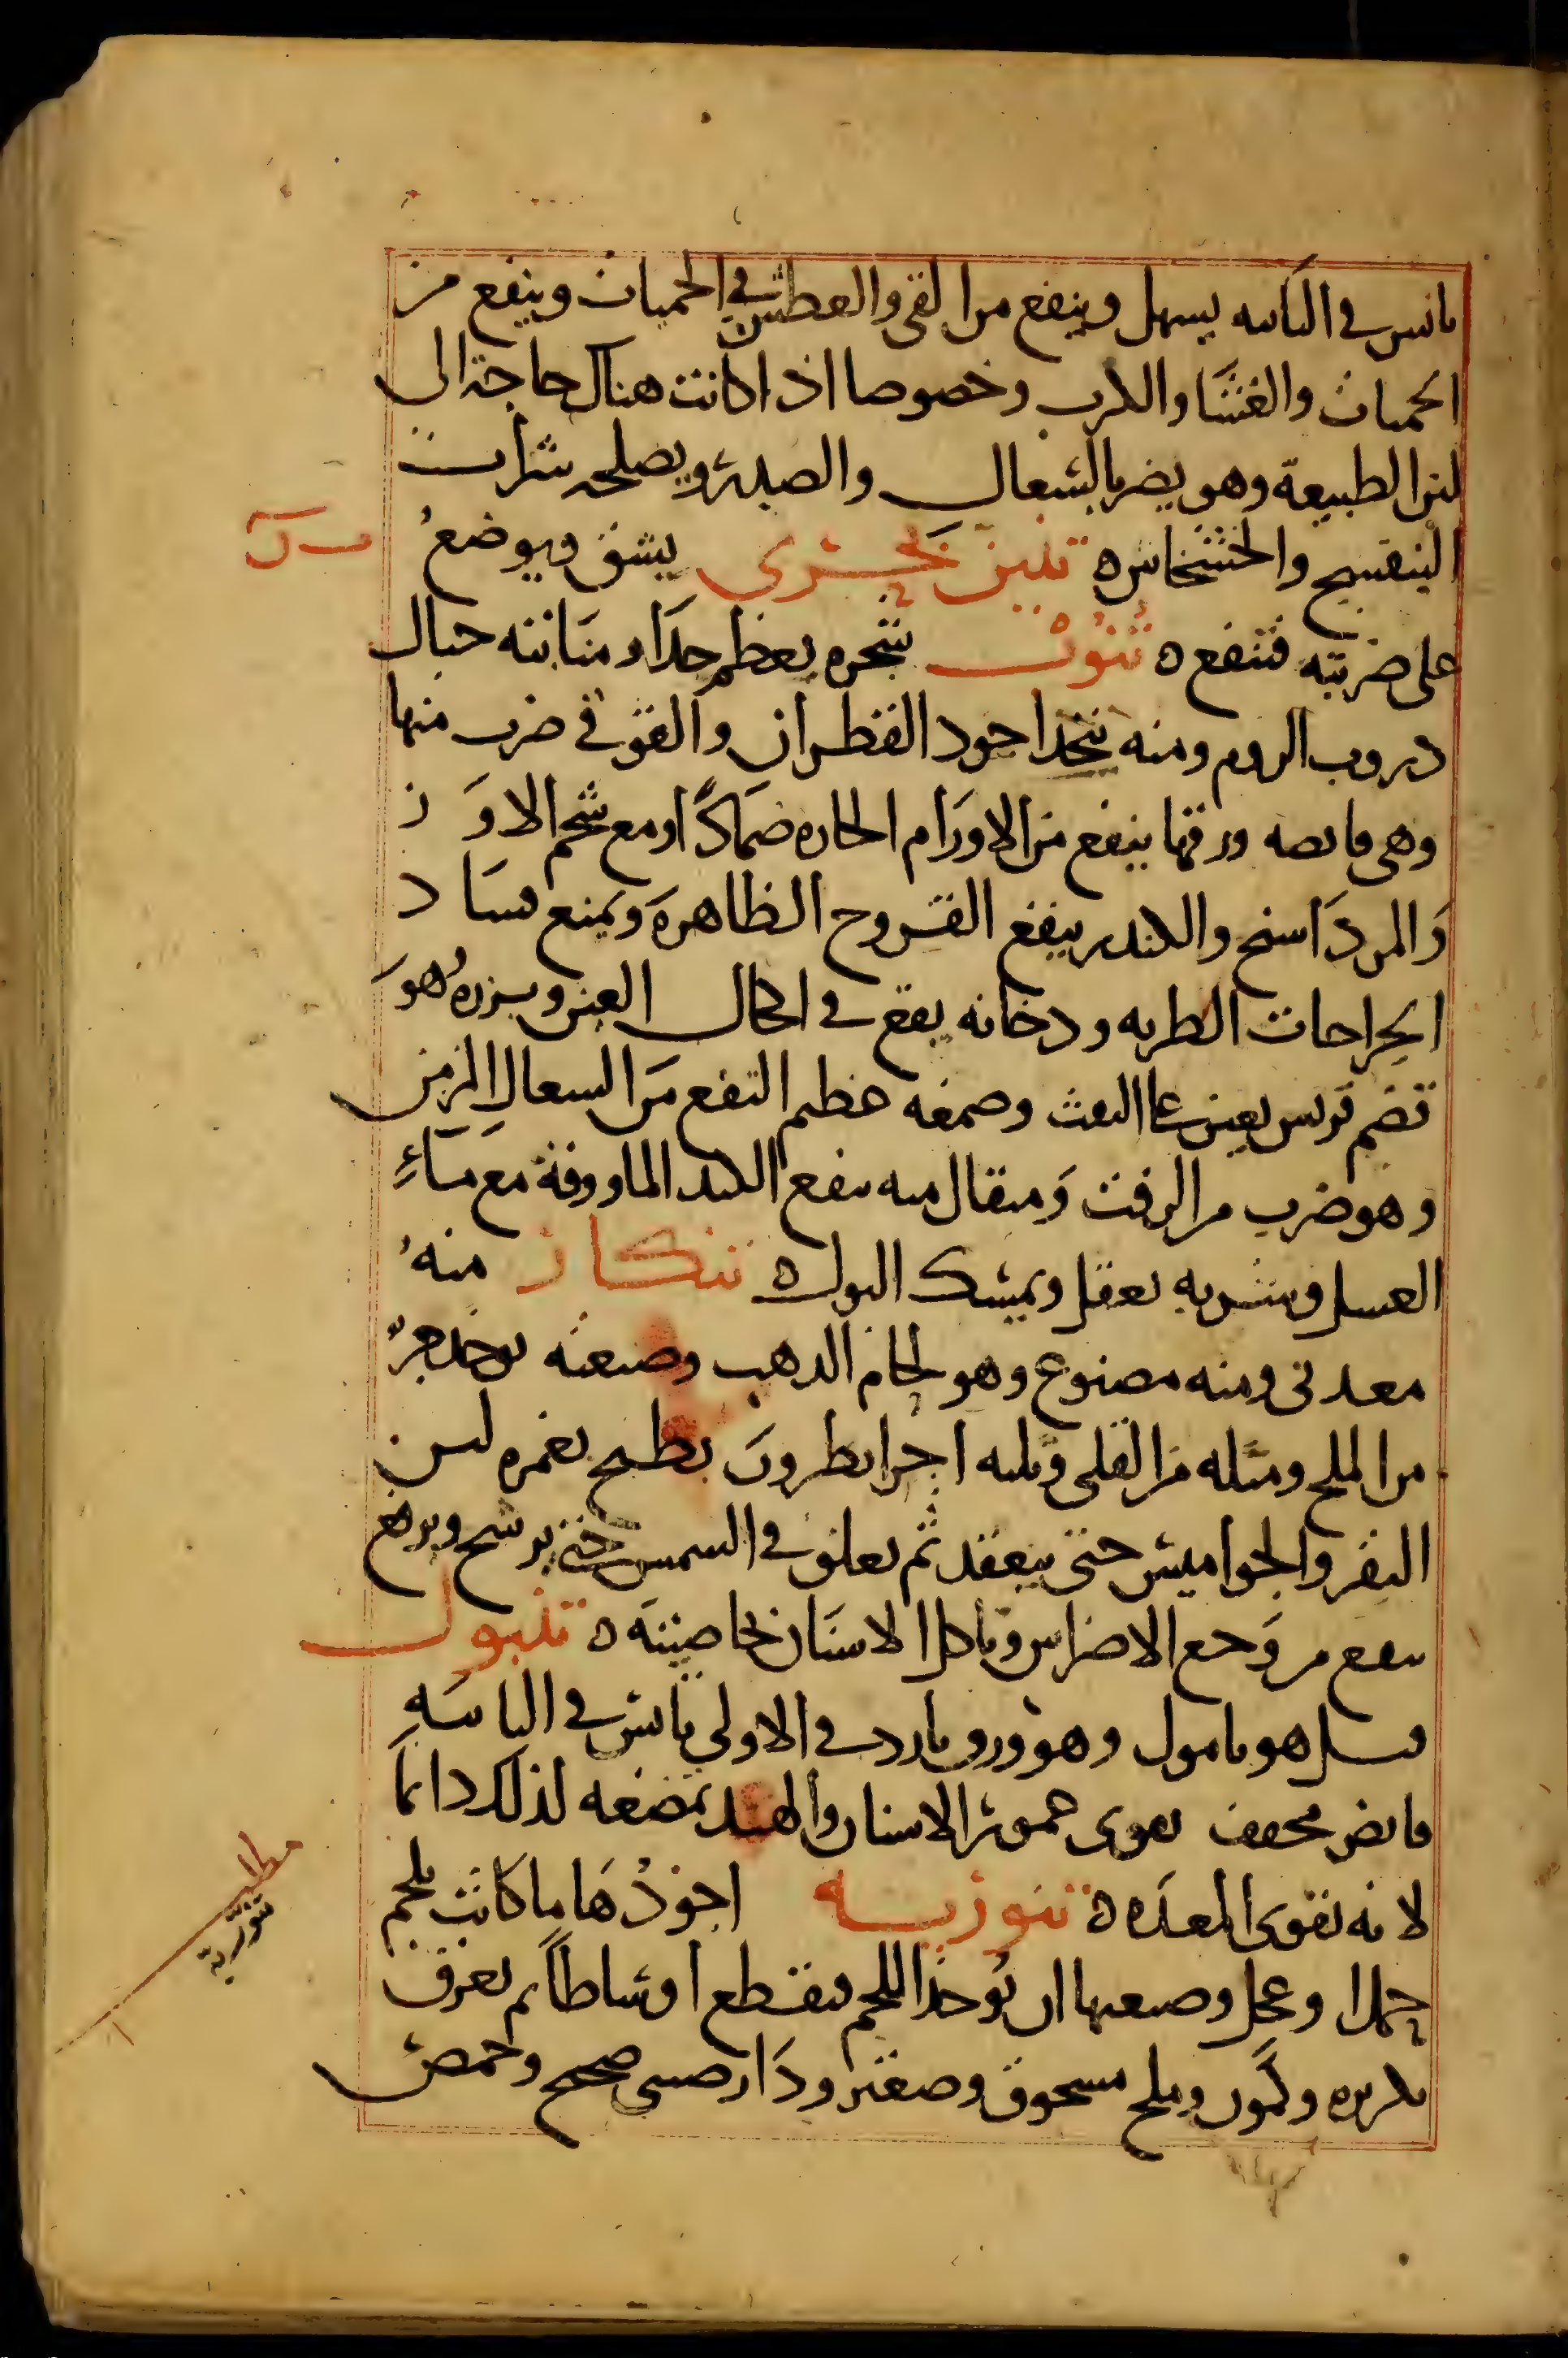 يابس في الثانيه يسهل وينفع من القي والعطش في الحميات وينفع من
الحميات والغشا والكرب وخصوصا اذا كانت هناك حاجة الى
لين الطبيعة وهو يضر بالسعال والصدر ويصلحه شراب
البنفسج والخشخاش ه تنين بحري يشق ويوضع
على ضربته فينفع ه تنوب شجره يعظم جدا ومنابته جبال
دروب الروم ومنه يتخذ اجود القطران والقوفي ضرب منها
وهي قابضه ورقها ينفع من الاورام الحاره ضمادا ومع شحم الاوز
والمرداسنج والكندر ينفع القروح الظاهرة ويمنع فساد
الجراحات الطريه ودخانه يقع في اكحال العين وبزره هو
قضم قريس يعين على النفث وصمغه عظيم النفع من السعال المزمن
وهو ضرب من الزفت ومثقال منه ينفع الكبد الماووفة مع ماء
العسل وشربه يعقل ويمسك البول ه تنكار منه
معدني ومنه مصنوع وهو لحام الذهب وصنعته يوخذ جزء
من الملح ومثله من القلي وثلثه اجزا بطرون يطبخ بغمره لبن
البقر والجواميس حتى ينعقد ثم يعلق في الشمس حتى يرشح ويرفع
ينفع من وجع الاضراس وتاكل الاسنان بخاصيته ه تنبول
قيل هو تامول وهو ورق بارد في الاولى يابس في الثانيه
قابض مجفف يقوي عمور الاسنان والهند تمضغه لذلك دائما
لانه يقوي المعده ه تنوريه اجودها ما كانت بلحم
جمل او عجل وصنعتها ان يوخذ اللحم فيقطع اوساطا ثم يعرق
بكزبره وكمون وملح مسحوق وصعتر ودارصيني صحيح وحمص
مطلب
تنورية